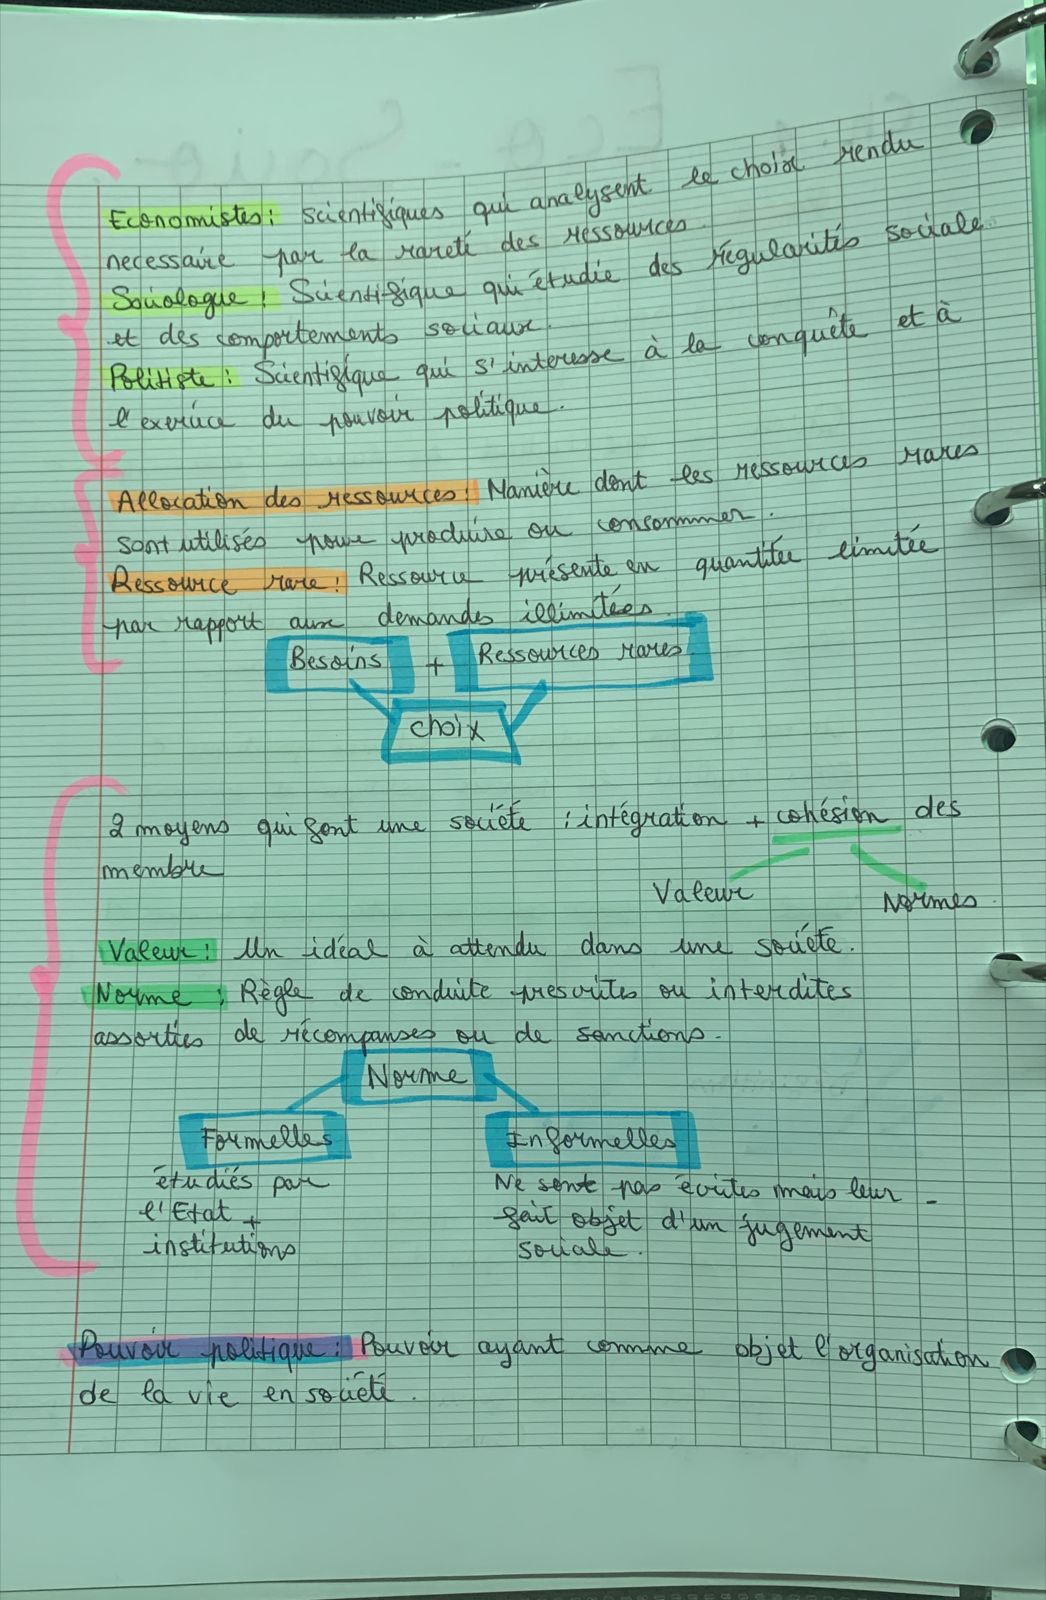 Economistes: scientifiques qui analysent le choix rendu
necessaire par la rareté des ressources.
Sociologue: Scientifique qui étudie des régularités sociale
et des comportements sociaux.
Politiste: Scientifique qui s'interesse à la conquête et à
l'exercice du pouvoir politique.
Allocation des ressources: Manière dont les ressources rares
sont utilisés pour produire ou consommer.
Ressource rare: Ressource présente en quantitée limitée
par rapport aux demandes illimitées.
Besoins + Ressources rares
choix
2 moyens qui font une société : intégration + cohésion des
membre
Valeur Normes.
Valeur: Un idéal à attendu dans une société.
Norme: Règle de conduite prescrites ou interdites
assorties de récompanses ou de sanctions.
Norme
Formelles Informelles
étudiés par Ne sont pas écrites mais leur -
l'Etat + fait objet d'un jugement
institutions sociale.
Pouvoir politique: Pouvoir ayant comme objet l'organisation
de la vie en société.